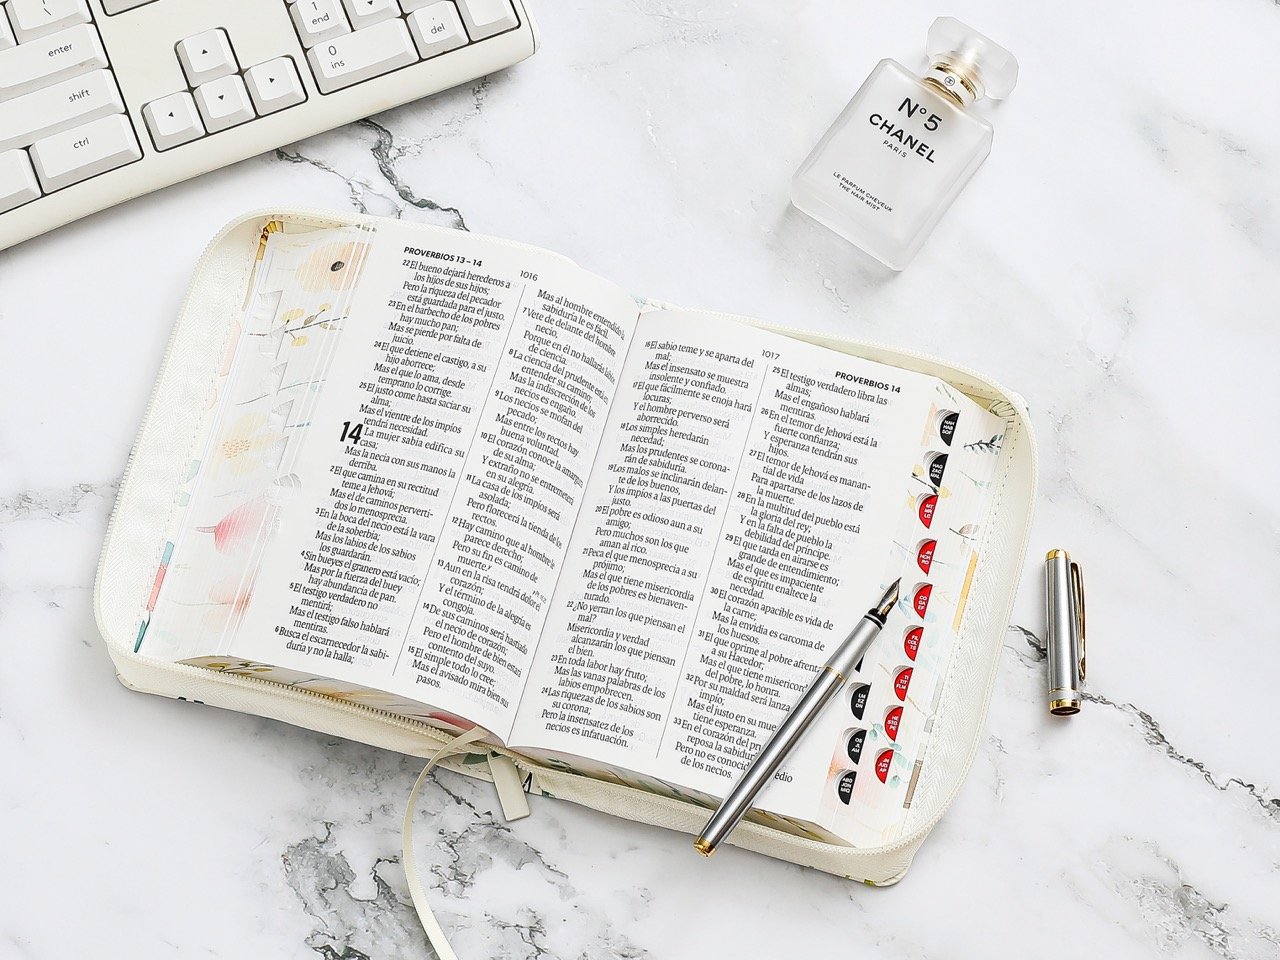 enter
shift
ctrl
1
end
0
ins
.
del
N°5
CHANEL
PARIS
LE PARFUM CHEVEUX
THE HAIR MIST
PROVERBIOS 13 – 14
1016
22 El bueno dejará herederos a
los hijos de sus hijos;
Pero la riqueza del pecador
está guardada para el justo.
23 En el barbecho de los pobres
hay mucho pan;
Mas se pierde por falta de
juicio.
24 El que detiene el castigo, a su
hijo aborrece;
Mas el que lo ama, desde
temprano lo corrige.
25 El justo come hasta saciar su
alma;
Mas el vientre de los impíos
tendrá necesidad.
14 La mujer sabia edifica su
casa;
Mas la necia con sus manos la
derriba.
2 El que camina en su rectitud
teme a Jehová;
Mas el de caminos perverti-
dos lo menosprecia.
3 En la boca del necio está la vara
de la soberbia;
Mas los labios de los sabios
los guardarán.
4 Sin bueyes el granero está vacío;
Mas por la fuerza del buey
hay abundancia de pan.
5 El testigo verdadero no
mentirá;
Mas el testigo falso hablará
mentiras.
6 Busca el escarnecedor la sabi-
duría y no la halla;
Mas al hombre entendido la
sabiduría le es fácil.
7 Vete de delante del hombre
necio,
Porque en él no hallarás labios
de ciencia.
8 La ciencia del prudente está en
entender su camino;
Mas la indiscreción de los
necios es engaño.
9 Los necios se mofan del
pecado;
Mas entre los rectos hay
buena voluntad.
10 El corazón conoce la amargura
de su alma;
Y extraño no se entremeterá
en su alegría.
11 La casa de los impíos será
asolada;
Pero florecerá la tienda de los
rectos.
12 Hay camino que al hombre le
parece derecho;
Pero su fin es camino de
muerte.
13 Aun en la risa tendrá dolor el
corazón;
Y el término de la alegría es
congoja.
14 De sus caminos será hastiado
el necio de corazón;
Pero el hombre de bien estará
contento del suyo.
15 El simple todo lo cree;
Mas el avisado mira bien sus
pasos.
1017
PROVERBIOS 14
16 El sabio teme y se aparta del
mal;
Mas el insensato se muestra
insolente y confiado.
17 El que fácilmente se enoja hará
locuras;
Y el hombre perverso será
aborrecido.
18 Los simples heredarán
necedad;
Mas los prudentes se corona-
rán de sabiduría.
19 Los malos se inclinarán delan-
te de los buenos,
Y los impíos a las puertas del
justo.
20 El pobre es odioso aun a su
amigo;
Pero muchos son los que
aman al rico.
21 Peca el que menosprecia a su
prójimo;
Mas el que tiene misericordia
de los pobres es bienaven-
turado.
22 ¿No yerran los que piensan el
mal?
Misericordia y verdad
alcanzarán los que piensan
el bien.
23 En toda labor hay fruto;
Mas las vanas palabras de los
labios empobrecen.
24 Las riquezas de los sabios son
su corona;
Pero la insensatez de los
necios es infatuación.
25 El testigo verdadero libra las
almas;
Mas el engañoso hablará
mentiras.
26 En el temor de Jehová está la
fuerte confianza;
Y esperanza tendrán sus
hijos.
27 El temor de Jehová es manan-
tial de vida
Para apartarse de los lazos de
la muerte.
28 En la multitud del pueblo está
la gloria del rey;
Y en la falta de pueblo la
debilidad del príncipe.
29 El que tarda en airarse es
grande de entendimiento;
Mas el que es impaciente
de espíritu enaltece la
necedad.
30 El corazón apacible es vida de
la carne;
Mas la envidia es carcoma de
los huesos.
31 El que oprime al pobre afrenta
a su Hacedor;
Mas el que tiene misericord
del pobre, lo honra.
32 Por su maldad será lanza
impío;
Mas el justo en su mue
tiene esperanza.
33 En el corazón del pru
reposa la sabidur
Pero no es conocid edio
de los necios.